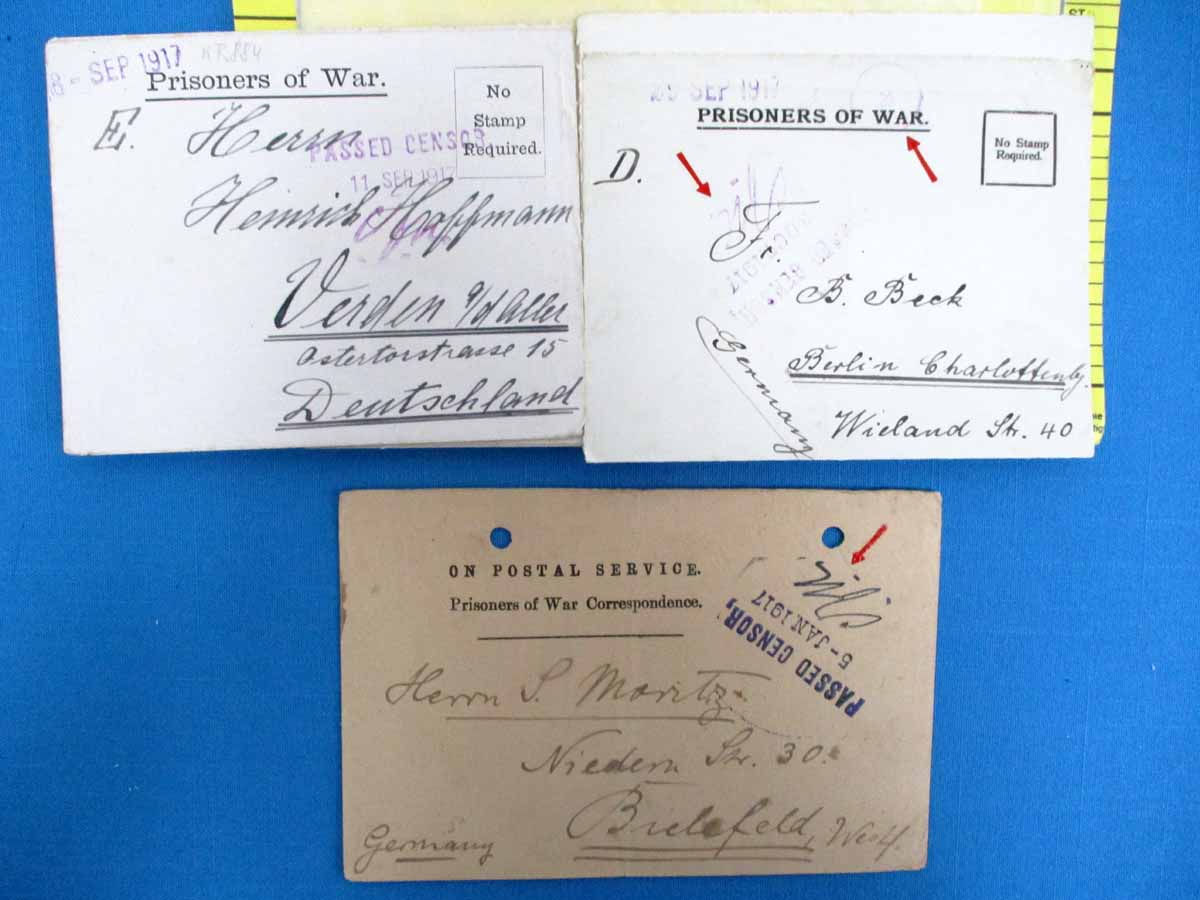 8 - SEP 1917
NR. 884
Prisoners of War.
No
Stamp
Required.
E. Herrn
PASSED CENSOR
11 SEP 1917
Heinrich Hoffmann
Verden a/d Aller
Ostertorstrasse 15
Deutschland
ST
SEP 1917
PRISONERS OF WAR.
No Stamp
Required.
D.
Fr.
B. Beck
Berlin Charlottenbg.
Wieland Str. 40
Germany
ON POSTAL SERVICE.
Prisoners of War Correspondence.
PASSED CENSOR,
5-JAN 1917
Herrn S. Moritz
Niedern Str. 30.
Bielefeld, Westf.
Germany